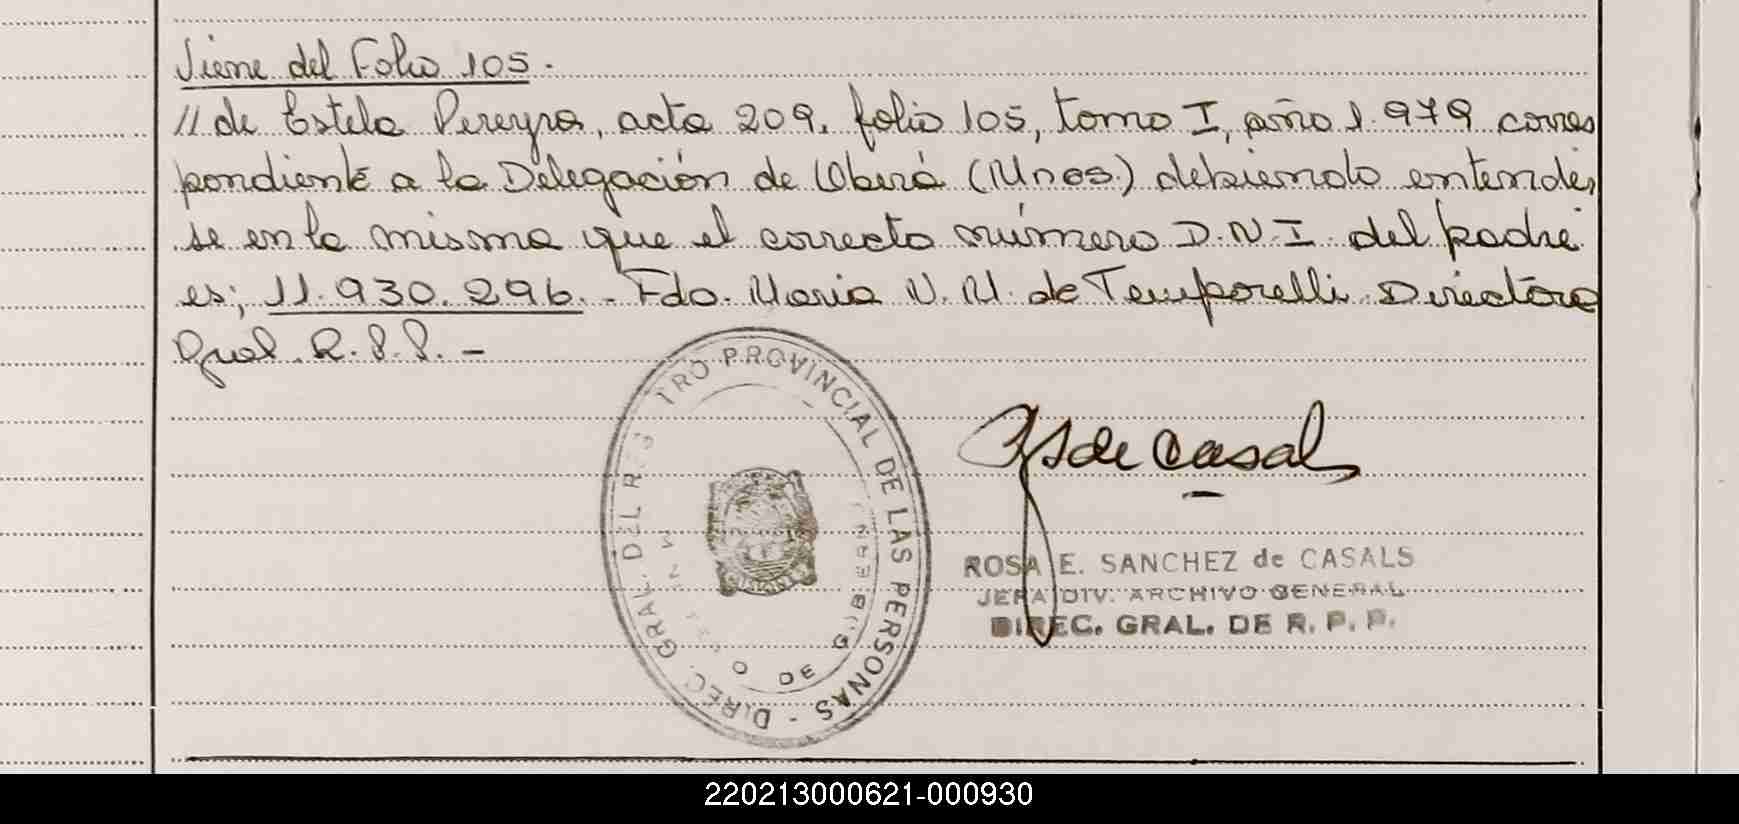 Viene del Folio 105.
// de Estela Pereyra, acta 209, folio 105, tomo I, año 1.979 corres
pondiente a la Delegación de Oberá (Mnes.) debiendo entender
se en la misma que el correcto número D.N.I. del padre
es; 11.930.296.- Fdo. Maria N. M. de Temporelli Directora
Gral. R.P.P. -
DIREC. GRAL. DEL REGISTRO PROVINCIAL DE LAS PERSONAS -
DE
de Casal
ROSA E. SANCHEZ de CASALS
JEFA DIV. ARCHIVO GENERAL
DIREC. GRAL. DE R. P. P.
220213000621-000930